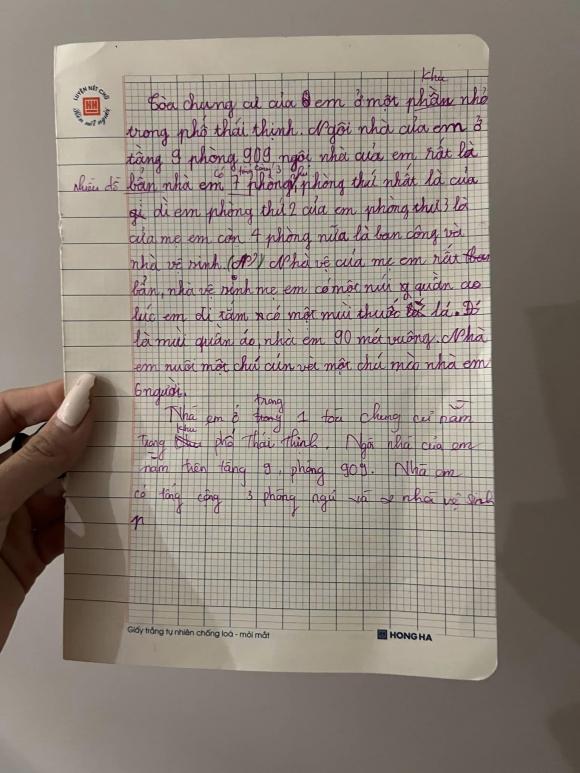 LUYỆN NÉT CHỮ
Rèn nết người
khu
Tòa chung cư của em ở một phần nhỏ
trong phố thái thịnh. Ngôi nhà của em ở
tầng 9 phòng 909 ngôi nhà của em rất là
nhiều đồ bẩn nhà em có 7 phòng, phòng thứ nhất là của
dì em phòng thứ 2 của em phòng thứ 3 là
của mẹ em còn 4 phòng nữa là ban công và
nhà vệ sinh (N) Nhà vệ của mẹ em rất
bẩn, nhà vệ sinh mẹ em có một núi quần áo
lúc em đi tắm có một mùi thuốc lá. Đó
là mùi quần áo, nhà em 90 mét vuông. Nhà
em nuôi một chú cún và một chú mèo nhà em
6 người.
trong
Nhà em ở trong 1 tòa chung cư nằm
khu
trong phố Thái Thịnh. Ngôi nhà của em
nằm trên tầng 9, phòng 909. Nhà em
có tổng cộng 3 phòng ngủ và 2 nhà vệ sinh
n
Giấy trắng tự nhiên chống loá - mỏi mắt
HONG HA